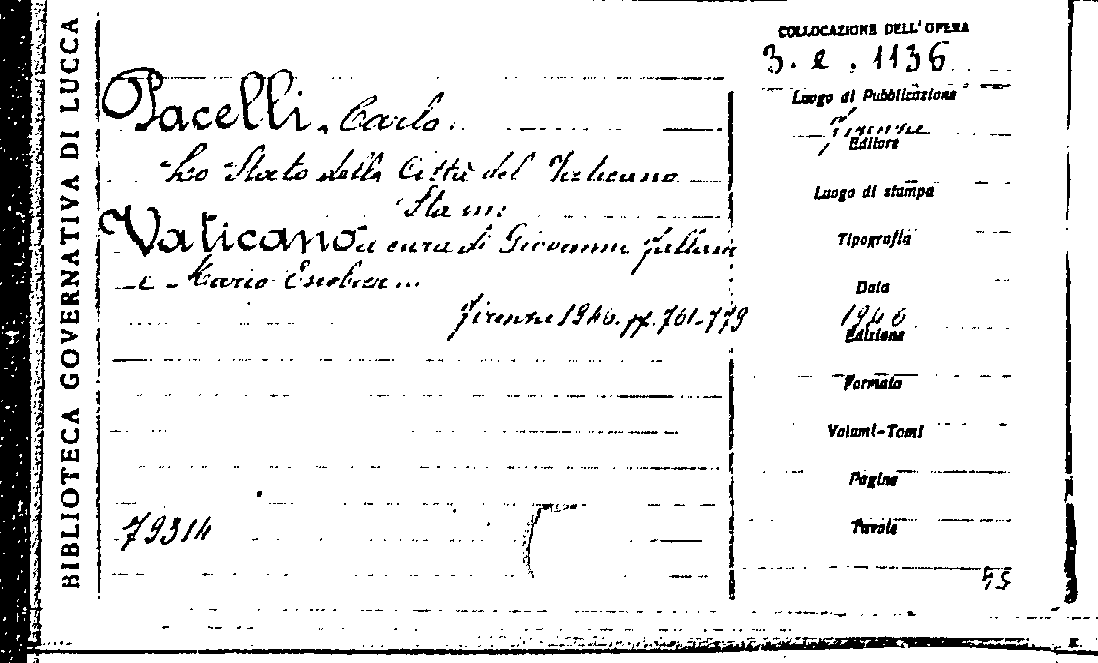 BIBLIOTECA GOVERNATIVA DI LUCCA
Pacelli, Carlo.
Lo Stato della Città del Vaticano
Sta in:
Vaticano a cura di Giovanni Fallani
e Mario Escobar...
Firenze 1946. pp. 701-779
79314
COLLOCAZIONE DELL'OPERA
3. e. 1136
Luogo di Pubblicazione
Firenze
Editore
Luogo di stampa
Tipografia
Data
1946
Edizione
Formato
Volumi-Tomi
Pagine
Tavole